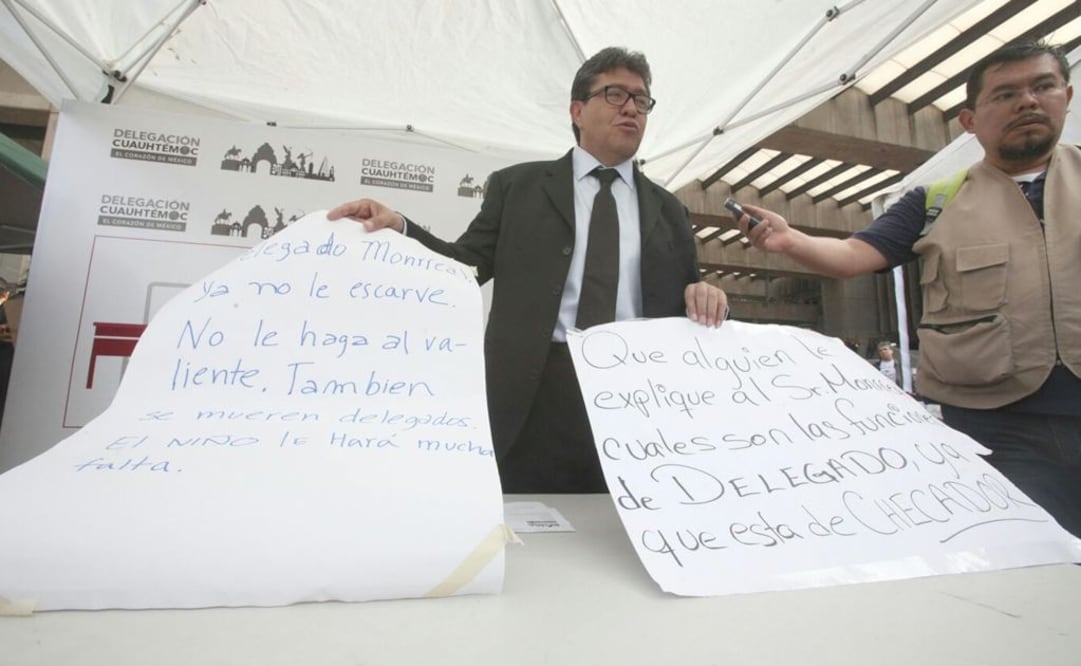 DELEGACIÓN
CUAUHTÉMOC
EL CORAZÓN DE MÉXICO
DELEGACIÓN
CUAUHTÉMOC
EL CORAZÓN DE MÉXICO
DELEGACIÓN
CUAUHTÉMOC
EL CORAZÓN DE MÉXICO
elegado Monreal
ya no le escarve.
No le haga al va-
liente. Tambien
se mueren delegados.
El NIÑO le Hará mucha
falta.
Que alguien le
explique al Sr. Monrea
cuales son las funcione
de DELEGADO, ya
que esta de CHECADOR